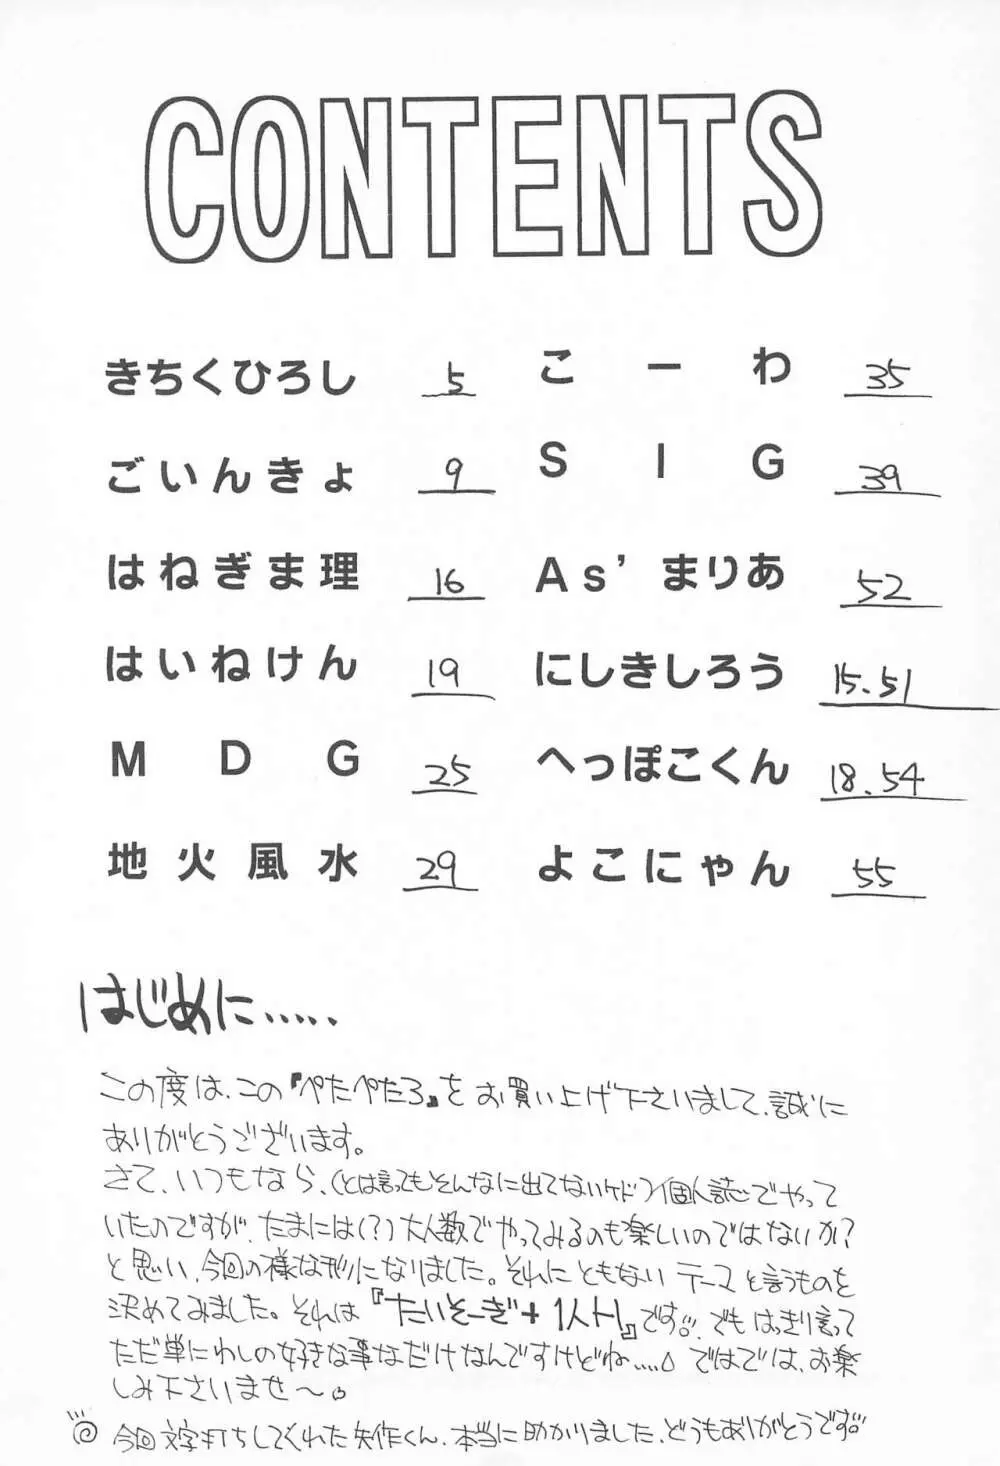 CONTENTS
きちくひろし 5
ごいんきょ 9
はねぎま理 16
はいねけん 19
MDG 25
地火風水 29
こーわ 35
SIG 39
As'まりあ 52
にしきしろう 15.51
へっぽこくん 18.54
よこにゃん 55
はじめに.....
この度は、この『ぺたぺたろ』をお買い上げ下さいまして、誠に
ありがとうございます。
さて、いつもなら、(とは言ってもそんなに出てないケド)個人誌でやって
いたのですが、たまには(?)大人数でやってみるのも楽しいのではないか?
と思い、今回の様な形になりました。それにともないテーマと言うものを
決めてみました。それは『たいそーぎ+』です。でもはっきり言って
ただ単にわしの好きな事なだけなんですけどね....。ではでは、お楽
しみ下さいませ〜。
今回文字打ちしてくれた矢作くん、本当に助かりました、どうもありがとうです。